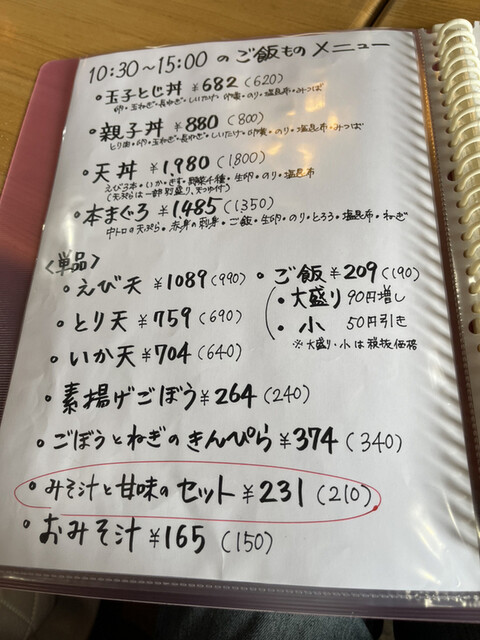 10:30〜15:00 のご飯もの メニュー
・玉子とじ丼 ¥682(620)
卵・玉ねぎ・長ねぎ・しいたけ・卵黄・のり・塩昆布・みつば
・親子丼 ¥880(800)
とり肉・卵・玉ねぎ・長ねぎ・しいたけ・卵黄・のり・塩昆布・みつば
・天丼 ¥1,980(1,800)
えび3本・いか・きす・野菜4種・生卵・のり・塩昆布
(天ぷらは一部別盛り、天つゆ付)
・本まぐろ ¥1,485(1350)
中トロの天ぷら・赤身の刺身・ご飯・生卵・のり・とろろ・塩昆布・ねぎ
〈単品〉
・えび天 ¥1089(990)
・とり天 ¥759(690)
・いか天 ¥704(640)
・ご飯 ¥209(190)
・大盛り 90円増し
・小 50円引き
※大盛り・小は税抜価格
・素揚げごぼう ¥264(240)
・ごぼうとねぎのきんぴら ¥374(340)
・みそ汁と甘味のセット ¥231(210)
・おみそ汁 ¥165(150)